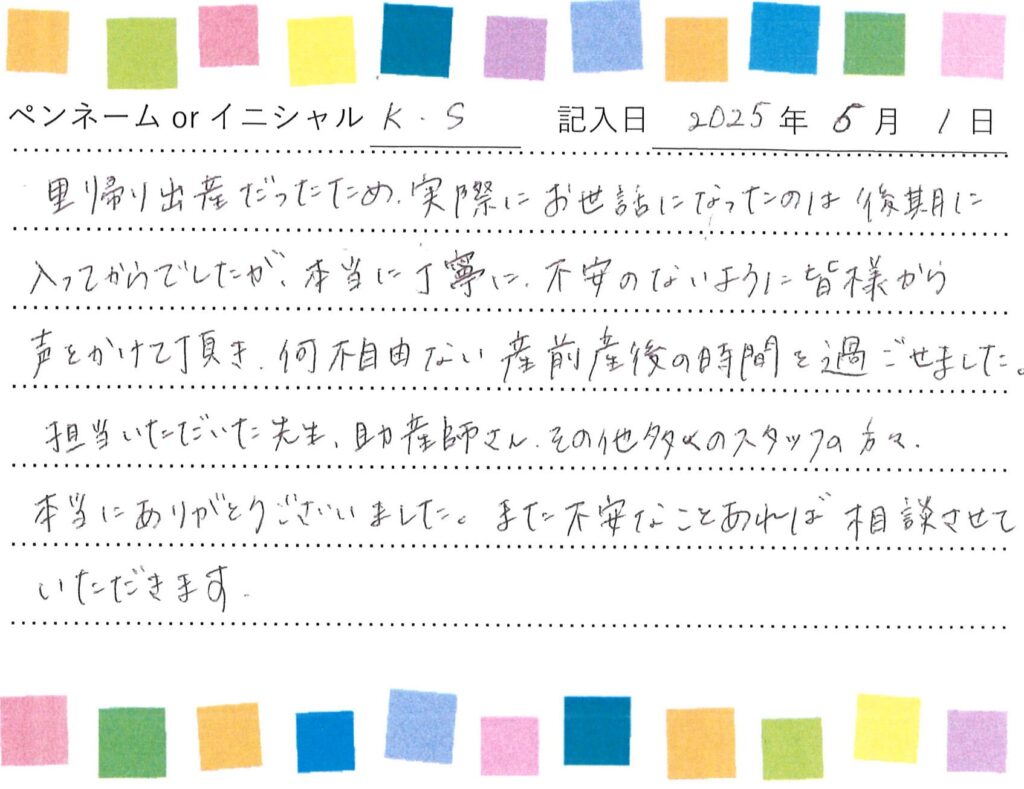 ペンネーム or イニシャル K.S 記入日 2025年 5月 1日
里帰り出産だったため、実際にお世話になったのは後期に
入ってからでしたが、本当に丁寧に、不安のないように皆様から
声をかけて頂き、何不自由ない産前産後の時間を過ごせました。
担当いただいた先生、助産師さん、その他多くのスタッフの方々、
本当にありがとうございました。また不安なことあれば相談させて
いただきます。